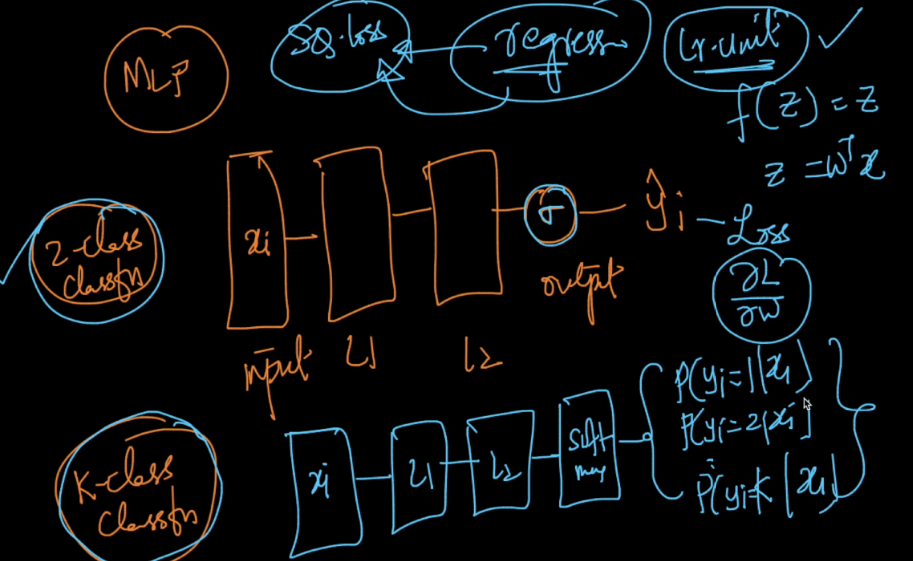 MLP
SQ.loss
regress
Lr.unit
f(z) = z
z = wᵀx
2-class
classfn
xi
σ
ŷi - Loss
output
∂L
∂W
input
L1
L2
K-class
classfn
xi
L1
L2
Soft
max
P(yi=1|xi)
P(yi=2|xi)
P(yi=K|xi)